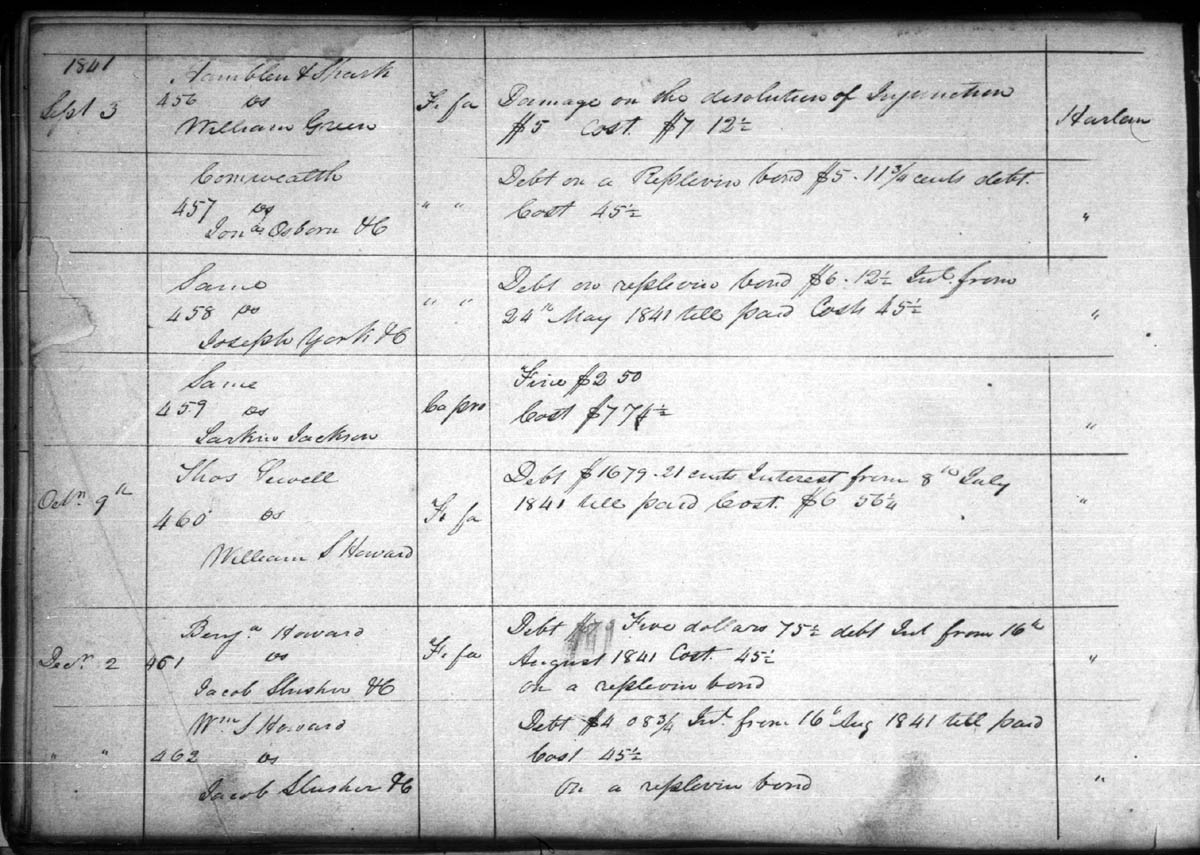 1841
Hamblen & Shark
Sept 3 456 vs Fi fa Damage on the disolution of Injunction Harlan
William Green $5 Cost. $7 12½
Comwealth Debt on a Replevin bond $5.11¾ cents debt.
457 vs " " Cost 45½ "
Jonas Osborn &C
Same Debt on replevin bond $6.12½ Int. from
458 vs " " 24th May 1841 till paid Cost 45½ "
Joseph York &C
Same Fine $2 50
459 vs Ca pro Cost $7 74½ "
Larkin Jackson
Thos Sewell Debt $1679.21 cents Interest from 8th July
Octr 9th 460 vs Fi fa 1841 till paid Cost. $6 56¼ "
William S Howard
Benja Howard Debt Five dollars 75½ debt Int from 16th
Decr 2 461 vs Fi fa August 1841 Cost. 45½ "
Jacob Slusher &C on a replevin bond
Wm S Howard Debt $4 08¾ Int. from 16t Aug 1841 till paid
" " 462 vs Cost 45½
Jacob Slusher &C On a replevin bond "